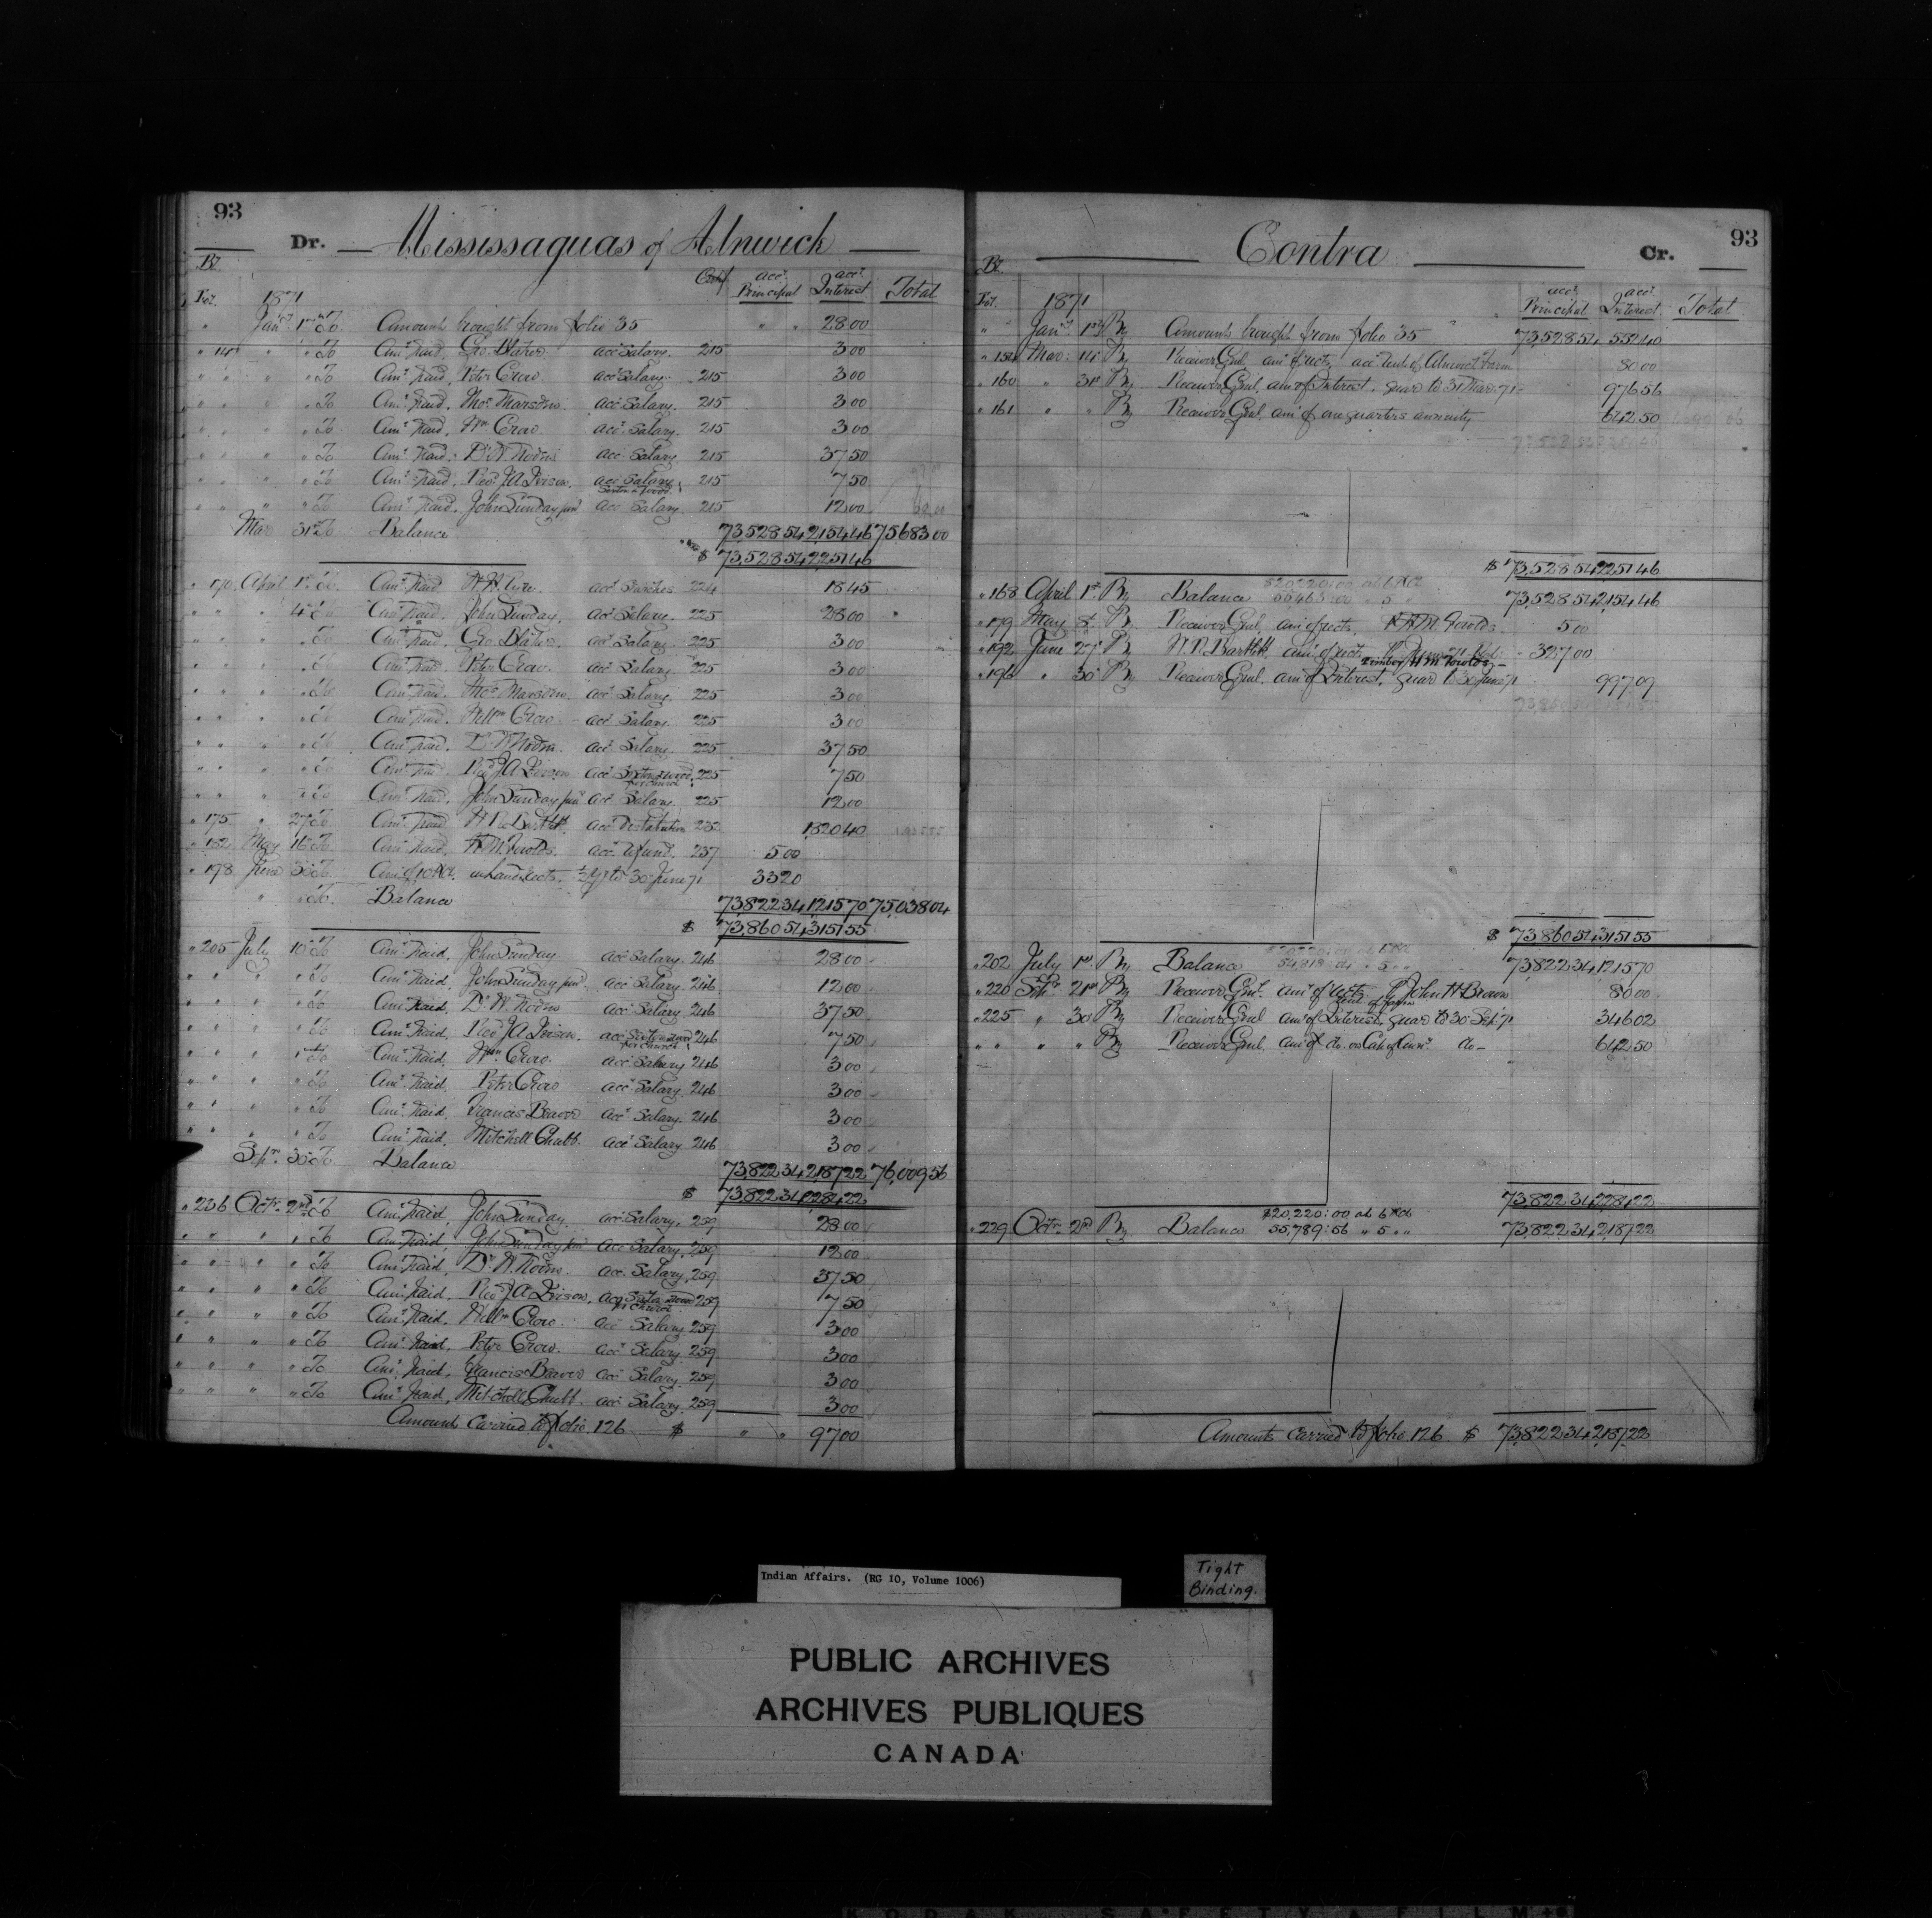 93
Dr. Mississaguas of Alnwick
Bl. Certf. acct. acct.
Fol. 1871 Principal Interest Total
" Jany. 1st To Amounts brought from folio 35 " " 28.00
" 141 " " To Amt. paid, Geo. Blaker acct. Salary. 215 3.00
" " " " To Amt. paid, Peter Crow. acct. Salary. 215 3.00
" " " " To Amt. paid, Thos. Marsden. acct. Salary. 215 3.00
" " " " To Amt. paid, Wm. Crow. acct. Salary. 215 3.00
" " " " To Amt. paid, Dr. W. acct. Salary. 215 37.50
" " " " To Amt. paid, Revd. J A Ivison. acct. Salary 215 7.50
" " " " To Amt. paid, John Sunday junr. acct. Salary. 215 12.00
Mar 31st To Balance 73,528 54 2,154.46 75683.00
$ 73,528 54 2,251.46
" 170 April 1st To Amt. paid, acct. 224 18.45
" " " 4th To Amt. paid, John Sunday, acct. Salary. 225 28.00
" " " " To Amt. paid, Geo. Blaker. acct. Salary. 225 3.00
" " " " To Amt. paid, Peter Crow. acct. Salary. 225 3.00
" " " " To Amt. paid, Thos. Marsden acct. Salary. 225 3.00
" " " " To Amt. paid, Willm. Crow acct. Salary. 225 3.00
" " " " To Amt. paid, Dr. W. acct. Salary. 225 37.50
" " " " To Amt. paid, Revd. J A Ivison acct. 225 7.50
" " " " To Amt. paid, John Sunday junr. acct. Salary. 225 12.00
" 175 " 27th To Amt. paid W. R. Bartlett, acct. Distribution 232 1,820.40
" 182 May 16th To Amt. paid, acct. refund. 237 5.00
" 198 June 30th To Amt. of 10 Pct. on Land rects. ½ yr. to 30 June 71 33.20
" " To Balance 73,822 34 1,215 70 75,038 04
$ 73,860 54 3,151 55
" 205 July 10th To Amt. paid, John Sunday acct. Salary. 246 28.00
" " " " To Amt. paid, John Sunday junr. acct. Salary. 246 12.00
" " " " To Amt. paid, Dr. W. acct. Salary. 246 37.50
" " " " To Amt. paid, Revd. J A Ivison. acct. 246 7.50
" " " " To Amt. paid, Wm. Crow. acct. Salary 246 3.00
" " " " To Amt. paid, Peter Crow acct. Salary. 246 3.00
" " " " To Amt. paid, Francis Beaver acct. Salary. 246 3.00
" " " " To Amt. paid, Mitchell Chubb. acct. Salary. 246 3.00
Sepr. 30th To Balance 73,822 34 2,187 22 76,009 56
$ 73,822 34 2,284 22
" 236 Octr. 2nd To Amt. paid, John Sunday, acct. Salary, 259 28.00
" " " " To Amt. paid, John Sunday junr. acct. Salary, 259 12.00
" " " " To Amt. paid, Dr. W. acct. Salary, 259 37.50
" " " " To Amt. paid, Revd. J A Ivison, acct. 259 7.50
" " " " To Amt. paid, Willm. Crow. acct. Salary 259 3.00
" " " " To Amt. paid, Peter Crow. acct. Salary 259 3.00
" " " " To Amt. paid, Francis Beaver acct. Salary. 259 3.00
" " " " To Amt. paid, Mitchell Chubb. acct. Salary. 259 3.00
Amounts Carried to folio 126 $ " " 97.00
93
Contra Cr.
Bl. acct. acct.
Fol. 1871 Principal Interest Total
" Jany. 1st By Amounts brought from folio 35 73,528 54 552 40
" 154 Mar: 14th By Receiver Genl. amt. of rects. acct. rent of Alnwick Farm 80 00
" 160 " 31st By Receiver Genl. amt. of Interest. quar to 31 Mar. 71 976 56
" 161 " " By Receiver Genl. amt. of one quarters annuity 642 50
$ 73,528 54 2,251 46
$20,220:00 at 6 Pct
" 168 April 1st By Balance 55,463:00 " 5 " 73,528 54 2,154 46
" 179 May 8th By Receiver Genl. amt. of rects. 5 00
" 192 June 27th By W. R. Bartlett amt. of rects. 327 00
" 196 " 30th By Receiver Genl. amt. of Interest, quar to 30 June 71 997 09
$ 73,860 54 3,151 55
$20,220:00 at 6 Pct
" 202 July 1st By Balance 54,818:04 " 5 " " 73,822 34 1,215 70
" 220 Sepr. 21st By Receiver Genl. amt. of rects John H Brown 80 00
" 225 " 30th By Receiver Genl amt. of Interest, quar to 30 Sep. 71 346 02
" " " " By Receiver Genl. amt. of do. on Cap. of Annt. do 642 50
73,822 34 2,284 22
$20,220:00 at 6 Pct
" 229 Octr. 2nd By Balance 55,789:56 " 5 " " 73,822 34 2,187 22
Amounts Carried to folio 126. $ 73,822 34 2,187 22
Indian Affairs. (RG 10, Volume 1006)
Tight
Binding.
PUBLIC ARCHIVES
ARCHIVES PUBLIQUES
CANADA
KODAK SAFETY FILM